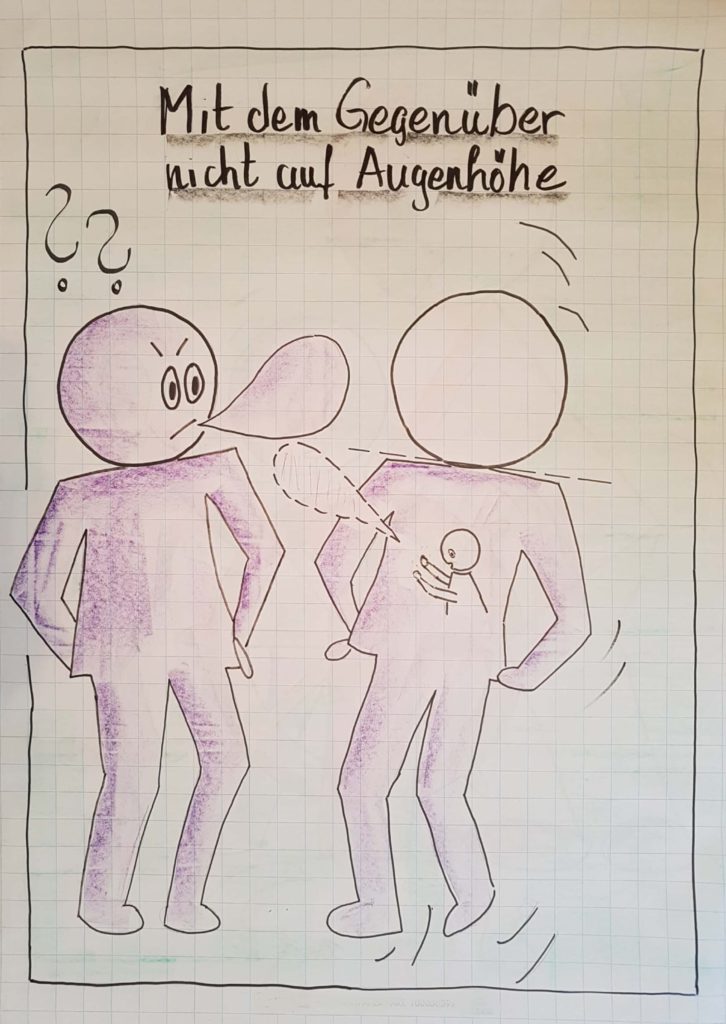 Mit dem Gegenüber
nicht auf Augenhöhe
??